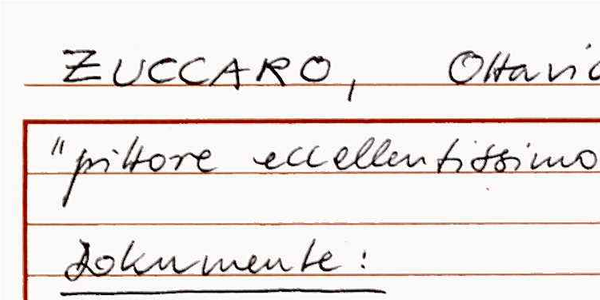 ZUCCARO, Ottavio
"pittore eccellentissimo
Dokumente: